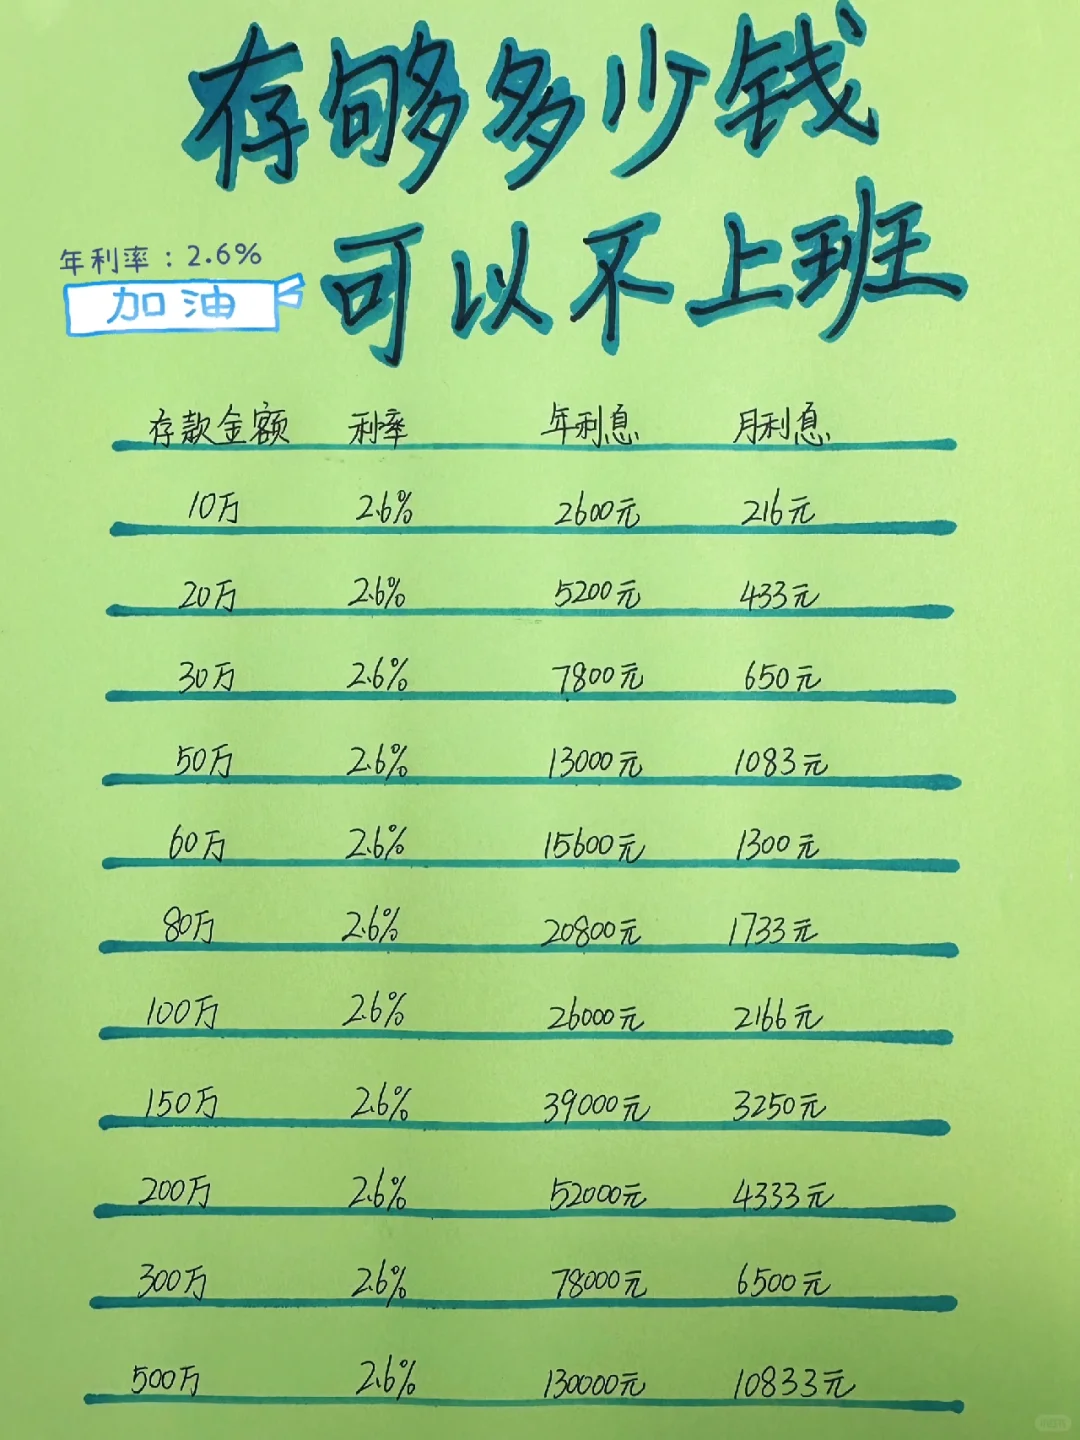 存够多少钱
可以不上班
年利率：2.6%
加油
存款金额 利率 年利息 月利息
10万 2.6% 2600元 216元
20万 2.6% 5200元 433元
30万 2.6% 7800元 650元
50万 2.6% 13000元 1083元
60万 2.6% 15600元 1300元
80万 2.6% 20800元 1733元
100万 2.6% 26000元 2166元
150万 2.6% 39000元 3250元
200万 2.6% 52000元 4333元
300万 2.6% 78000元 6500元
500万 2.6% 130000元 10833元